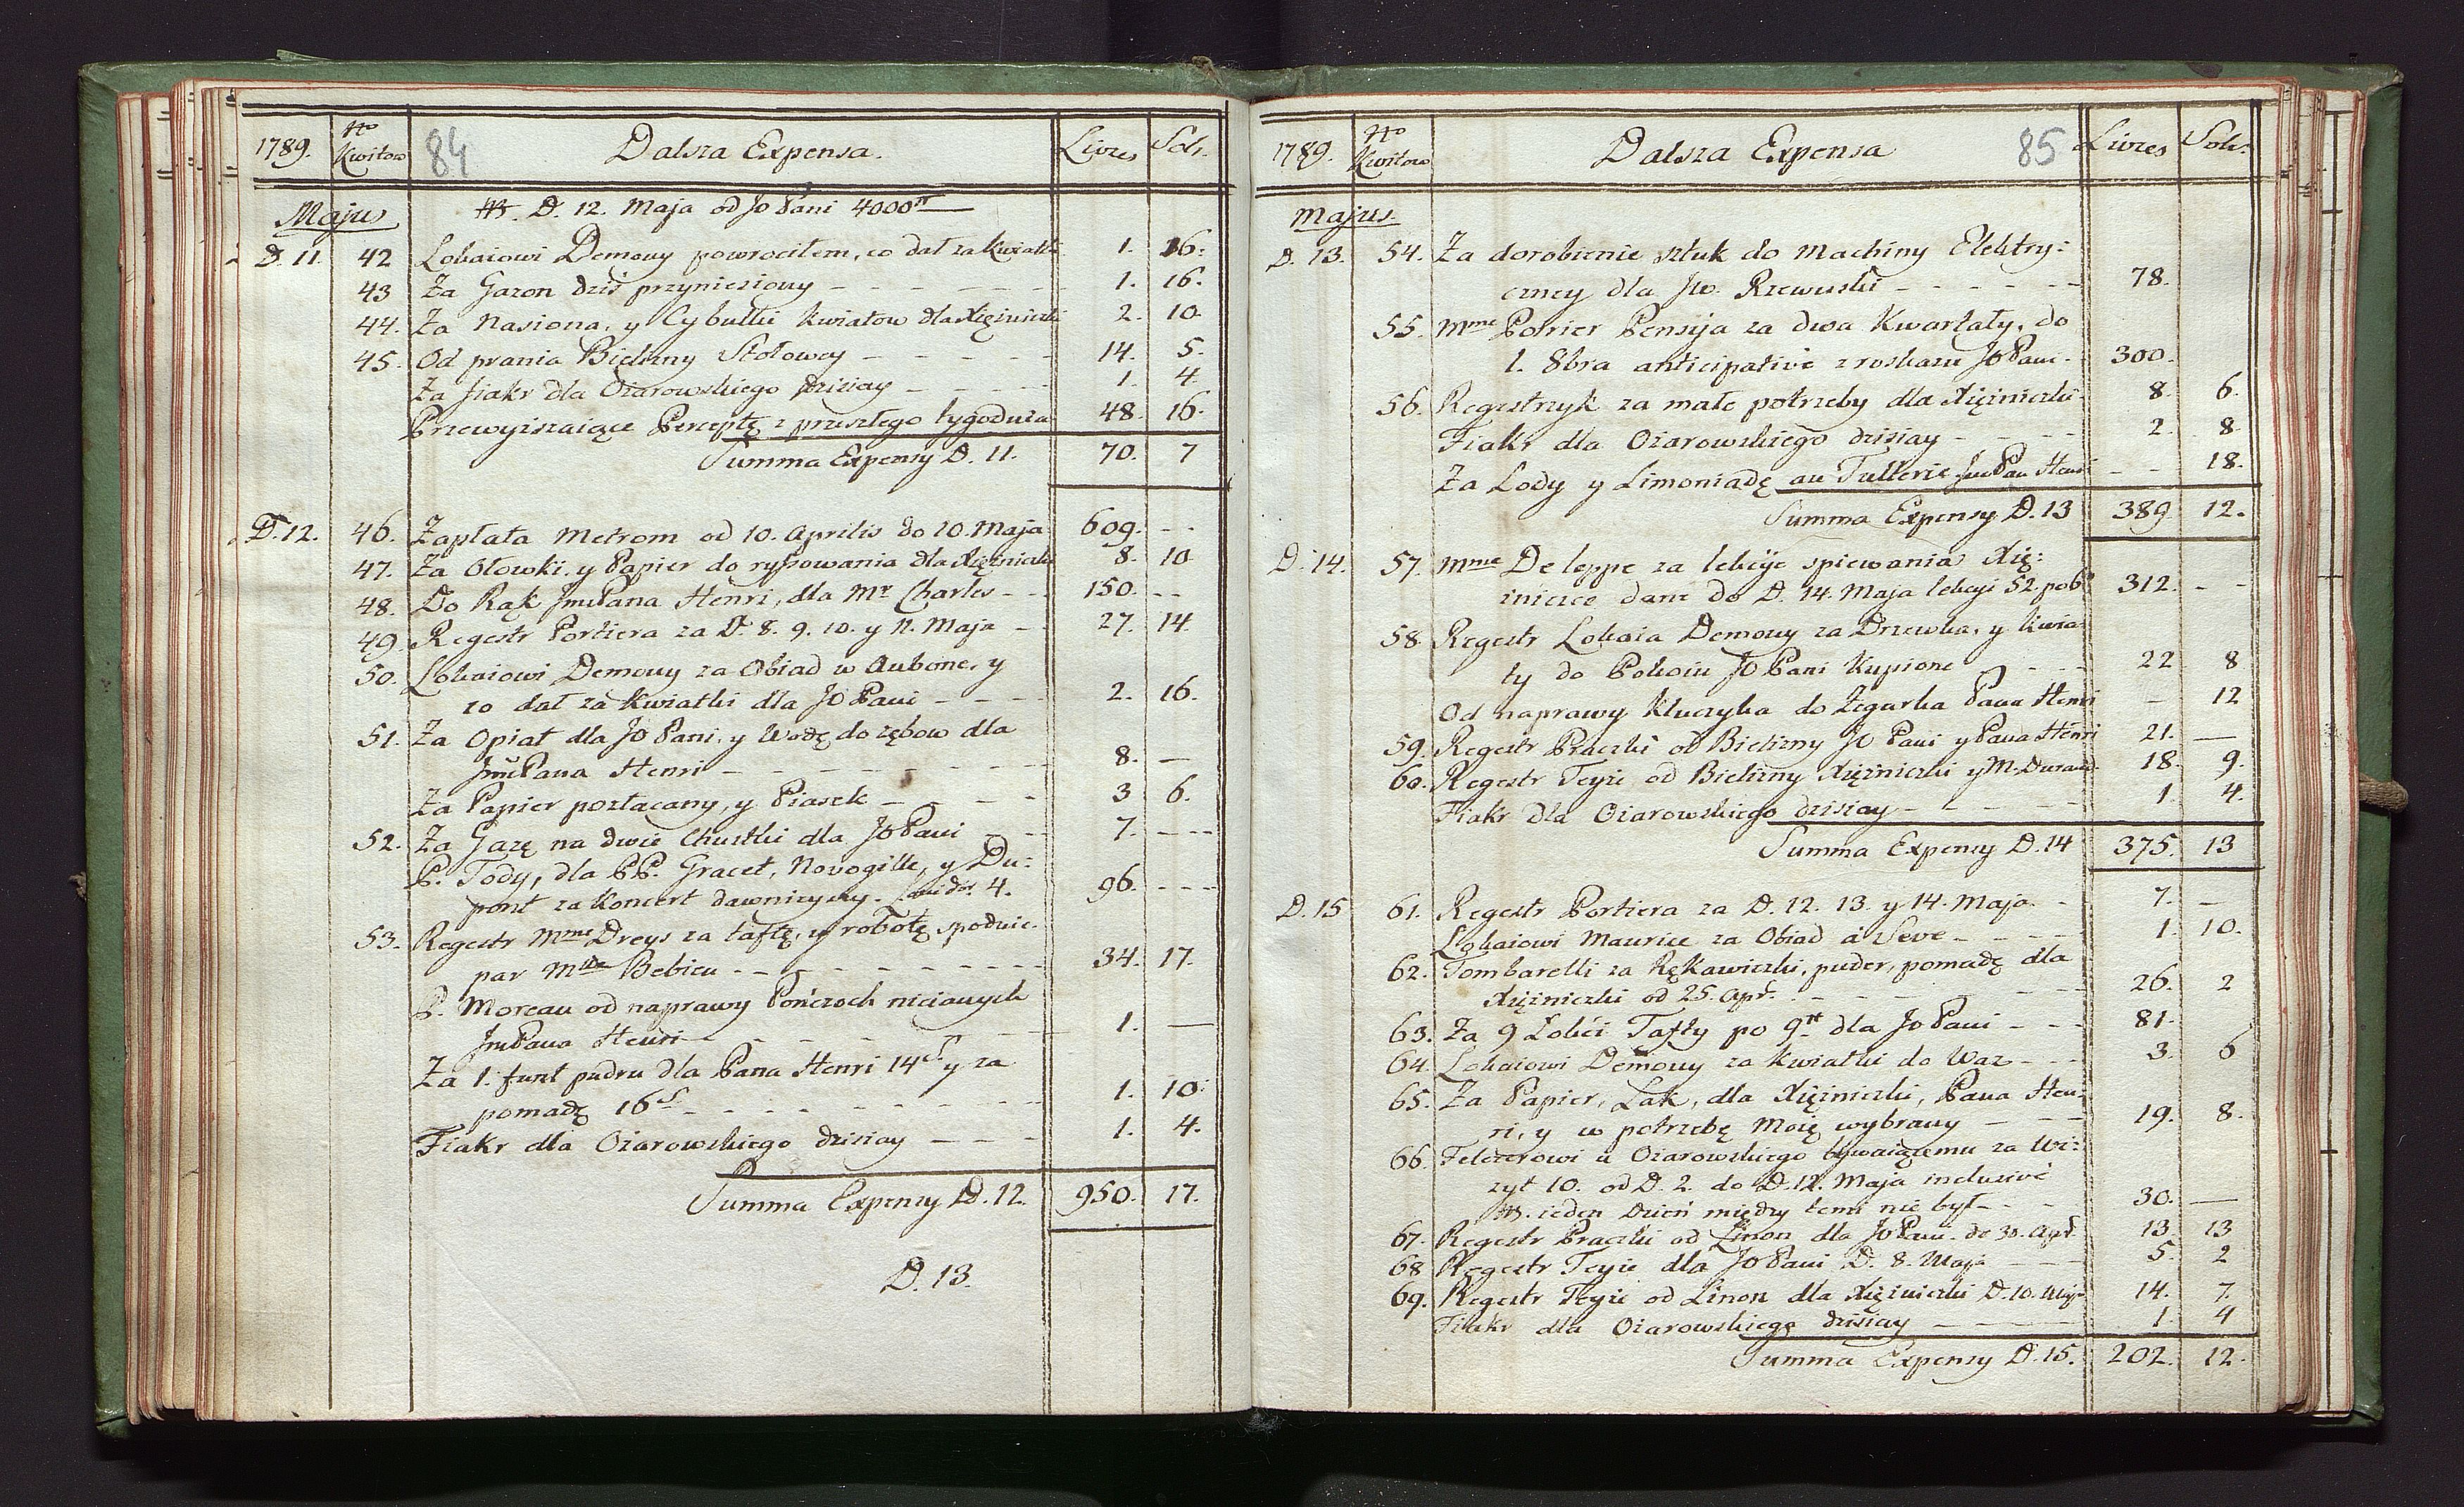 1789. No Kwitow 84 Dalsza Expensa. Livres Sols.
Majus NB. D. 12. Maja od JO Pani 4000tt
D. 11. 42 Lokaiowi Demouy powrociłem, co dał za kwiatki 1. 16.
43 Za Gazon dziś przyniesiony 1. 16.
44. Za Nasiona, y Cybulki kwiatow dla Xiężniczki 2. 10.
45. Od prania Bielizny Stołowey 14. 5.
Za fiakr dla Ożarowskiego dzisiay 1. 4.
Przewyższaiące Perceptę z przeszłego tygodnia 48. 16.
Summa Expensy D. 11. 70. 7
D. 12. 46. Zapłata Metrom od 10. Aprilis do 10. Maja 609. - -
47. Za Ołowki, y Papier do rysowania dla Xiężniczki 8. 10
48. Do Rąk JmćPana Henri, dla Mr. Charles 150. - -
49. Regestr Portiera za D. 8. 9. 10. y 11. Maja 27. 14
50. Lokaiowi Demouy za Obiad w Aubone, y
co dał za kwiatki dla JO Pani 2. 16.
51. Za Opiat dla JO Pani, y Wodę do zębow dla
JmćPana Henri 8. —
Za Papier pozłacany, y Piasek 3 6.
52. Za Gazę na dwie Chustki dla JO Pani 7. - - -
P. Tody, dla PP. Gracet, Novogille, y Du:
pont za Koncert dawnieyszy. Louidor. 4. 96. - - -
53. Regestr Mme Dreys za taftę, y robotę spodnic.
par Mlle Bebieu 34. 17.
P. Moreau od naprawy Pończoch nicianych
JmPana Henri 1. —
Za 1. funt pudru dla Pana Henri 14s. y za
pomadę 16s. 1. 10:
Fiakr dla Ożarowskiego dzisiay 1. 4.
Summa Expensy D. 12. 950. 17.
D. 13.
1789. No Kwitow Dalsza Expensa 85 Livres Sols.
Majus.
D. 13. 54. Za dorobienie sztuk do Machiny Elektry:
czney dla JW. Rzewuski 78.
55. Mme Poirier Pensija za dwa Kwartały, do
1. 8bra anticipativè z roskazu JO Pani. 300.
56. Regestrzyk za małe potrzeby dla Xiężniczki 8. 6.
Fiakr dla Ożarowskiego dzisiay 2. 8.
Za Lody y Limoniadę au Tullerie JmPan Henri - - 18.
Summa Expensy D. 13 389 12.
D. 14. 57. Mme Deleppe za lekcye spiewania Xię:
żniczce dane do D. 14. Maja lekcyi 52. po 6tt 312. - -
58. Regestr Lokaia Demouy za Drzewka, y kwia:
ty do Pokoiu JO Pani kupione 22 8
Od naprawy kluczyka do Zegarka Pana Henri - 12
59. Regestr Praczki od Bielizny JO Pani y Pana Henri 21. —
60. Regestr Teyże od Bielizny Xiężniczki y M. Durand. 18. 9.
Fiakr dla Ożarowskiego dzisiay 1. 4.
Summa Expensy D. 14 375. 13
D. 15 61. Regestr Portiera za D. 12. 13. y 14. Maja 7. —
Lokaiowi Maurice za Obiad à Seve 1. 10.
62. Tombarelli za Rękawiczki, puder, pomadę dla
Xiężniczki od 25. Apr. 26. 2
63. Za 9 Łokci Tafty po 9tt dla JO Pani 81.
64. Lokaiowi Demouy za kwiatki do Waz 3. 6
65. Za Papier, Lak, dla Xiężniczki, Pana Hen:
ri, y w potrzebę Moię wybrany 19. 8.
66. Felczerowi u Ożarowskiego bywaiącemu za Wi:
zyt 10. od D. 2. do D. 12. Maja inclusivè
NB. ieden Dzień między temi nie był 30. —
67. Regestr Praczki od Linon dla JO Pani. do 30. Apr. 13. 13
68 Regestr Teyże dla JO Pani D. 8. Maja 5. 2
69. Regestr Teyże od Linon dla Xiężniczki D. 10. Maja 14. 7.
Fiakr dla Ożarowskiego dzisiay 1. 4
Summa Expensy D. 15. 202. 12.